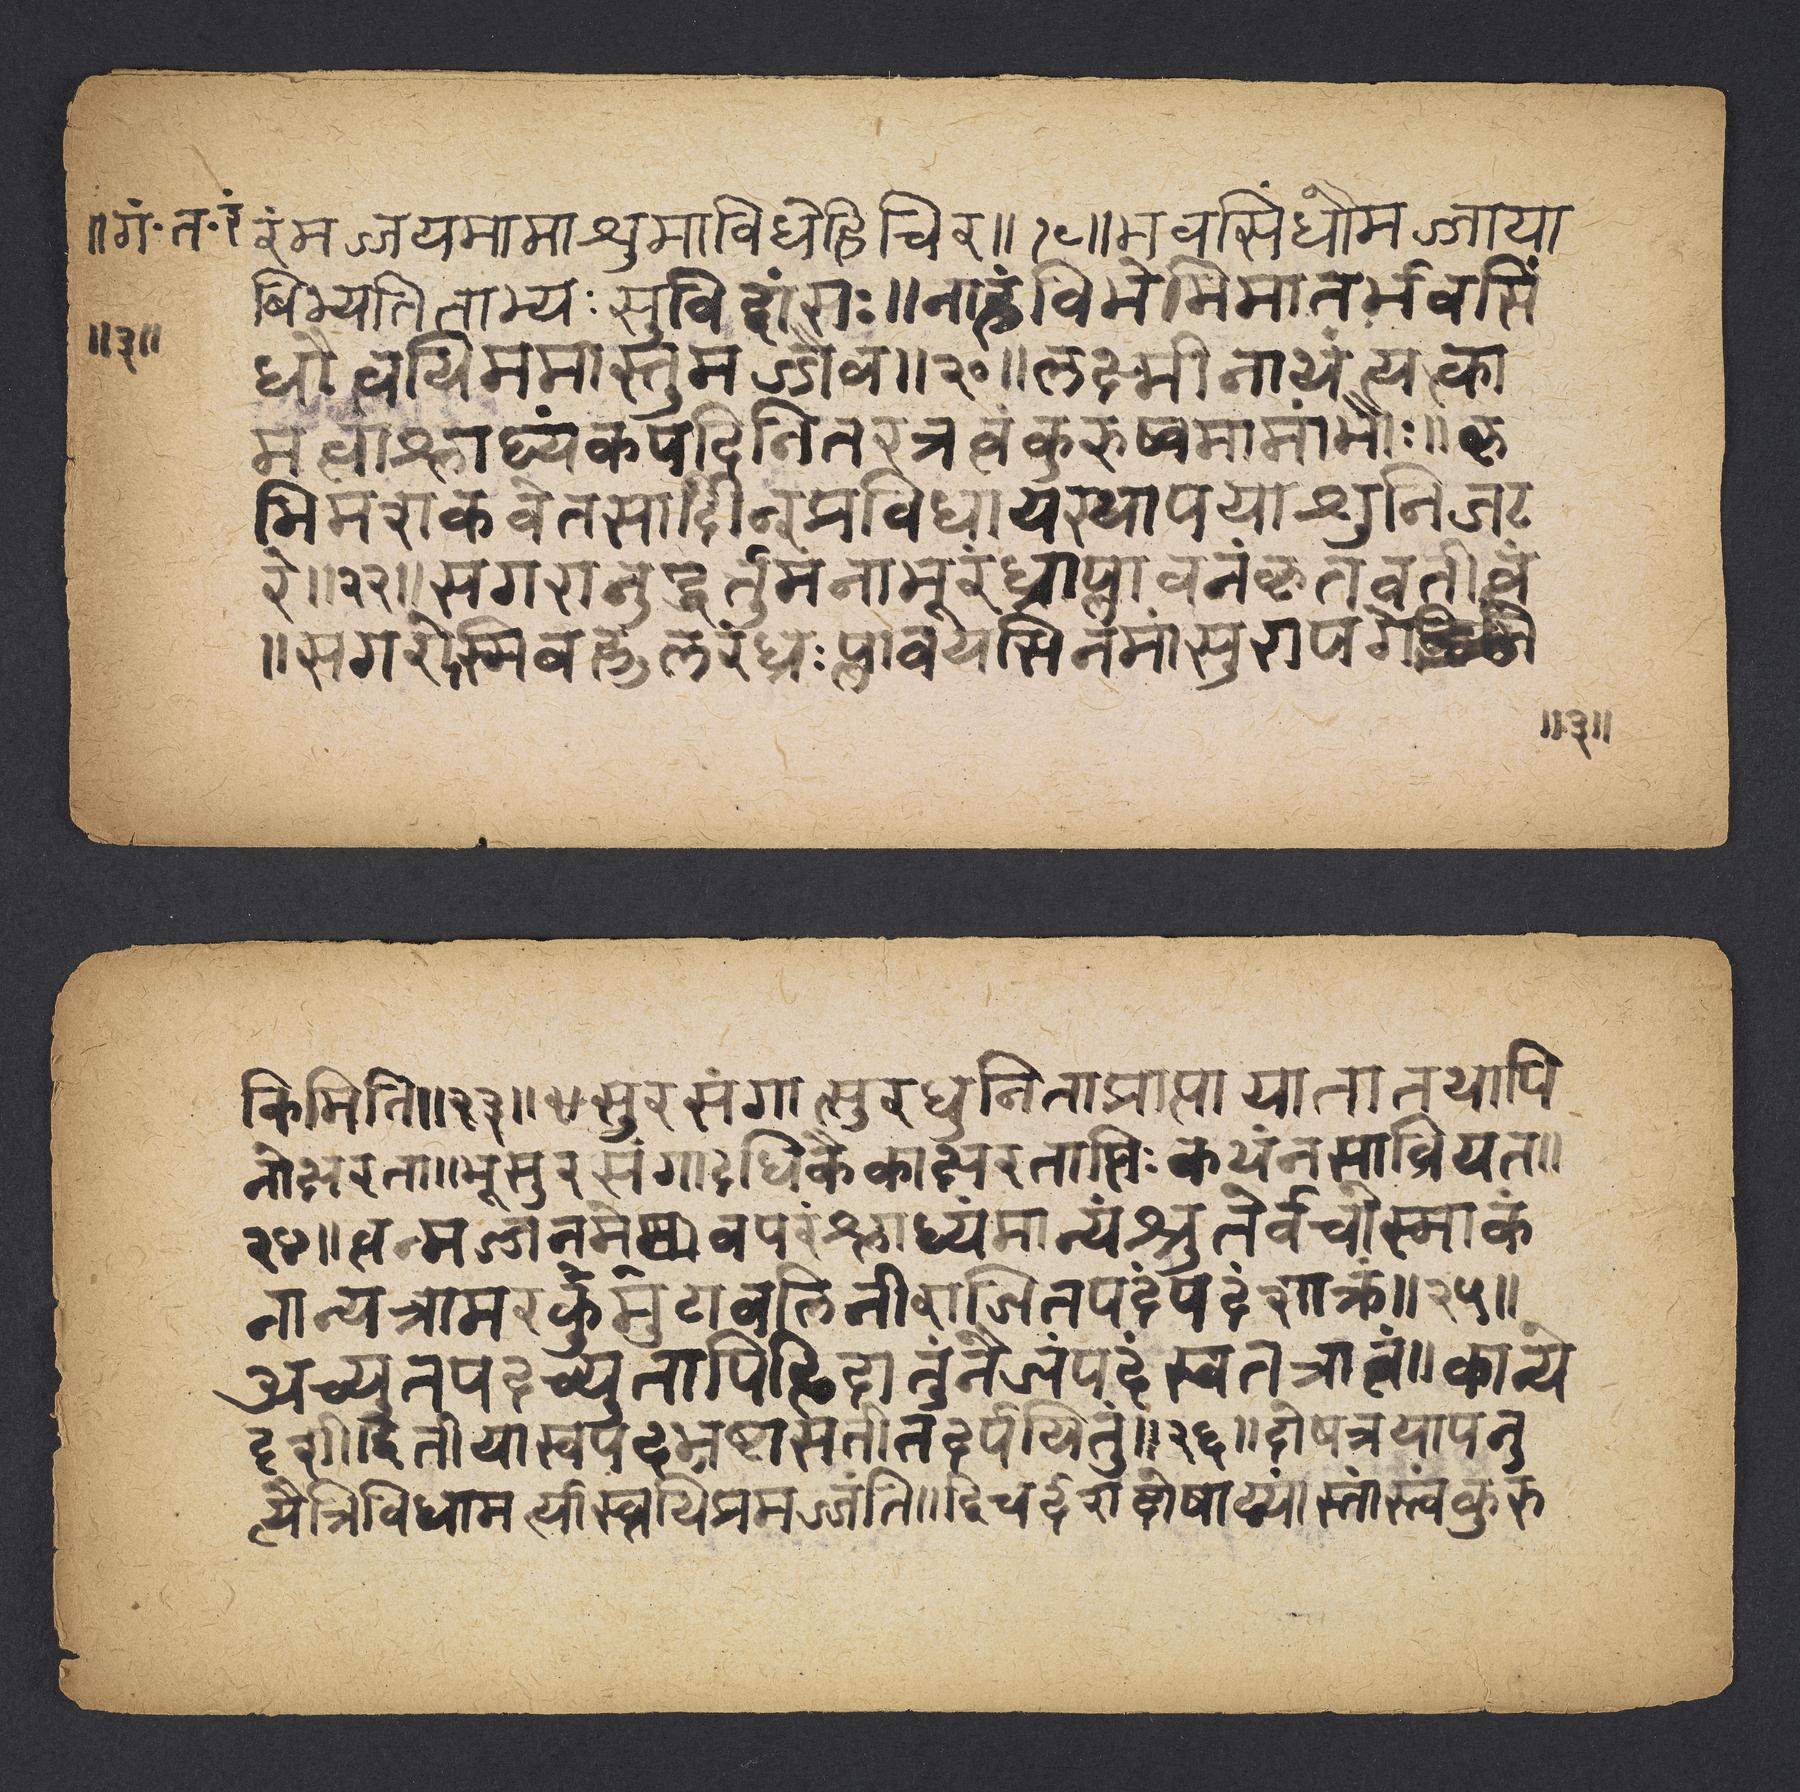 ॥गं॰त॰रं
॥३॥
रंमज्जयमामाश्रुमाविधेहिचिर॥१९॥भवसिंधौमज्जाया
बिभ्यतिताभ्यः सुविद्वांसः॥नाहंविभेमिमातर्भवसिं
धौत्वयिममास्तुमज्जैव॥२०॥लक्ष्मीनाथंत्यक्त्वा
मत्वाश्लाघ्यंकपर्दिनितरत्रत्वंकुरुष्वमामांभोः॥कृ
मिमशकवेतसादीन्प्रविधायस्थापयाश्रुनिजट
रे॥२२॥सगरानुद्धर्तुमनाभूरंध्राप्लावनंकृतवतीत्वं
॥सगरोस्मिबहुलरंध्रःप्लावयसिनमांसुरापगे
॥३॥
किमिति॥२३॥सुरसंगात्सुरधुनिताप्राप्तायातातथापि
नोक्षरता॥भूसुरसंगादधिकैकाक्षरताप्तिःकथंनसाव्रियत॥
२४॥त्वन्मज्जनमेवपरंश्लाघ्यंमान्यंश्रुतेर्वचोस्माकं
नान्यत्रामरर्कुमुटावलिनीराजितपदंपदंशाक्रं॥२५॥
अच्युतपदच्युतापिहिदातुंनैजंपदंस्वतत्रात्वं॥कान्ये
दृशीद्वितीयास्वपदभ्रष्टासतीतदर्पयितुं॥२६॥दोषत्रयापनु
त्त्यैत्रिविधामर्त्यास्त्वयिप्रमज्जंति॥द्विचर्दशदोषाढ्यांस्तांस्त्वंकुरु